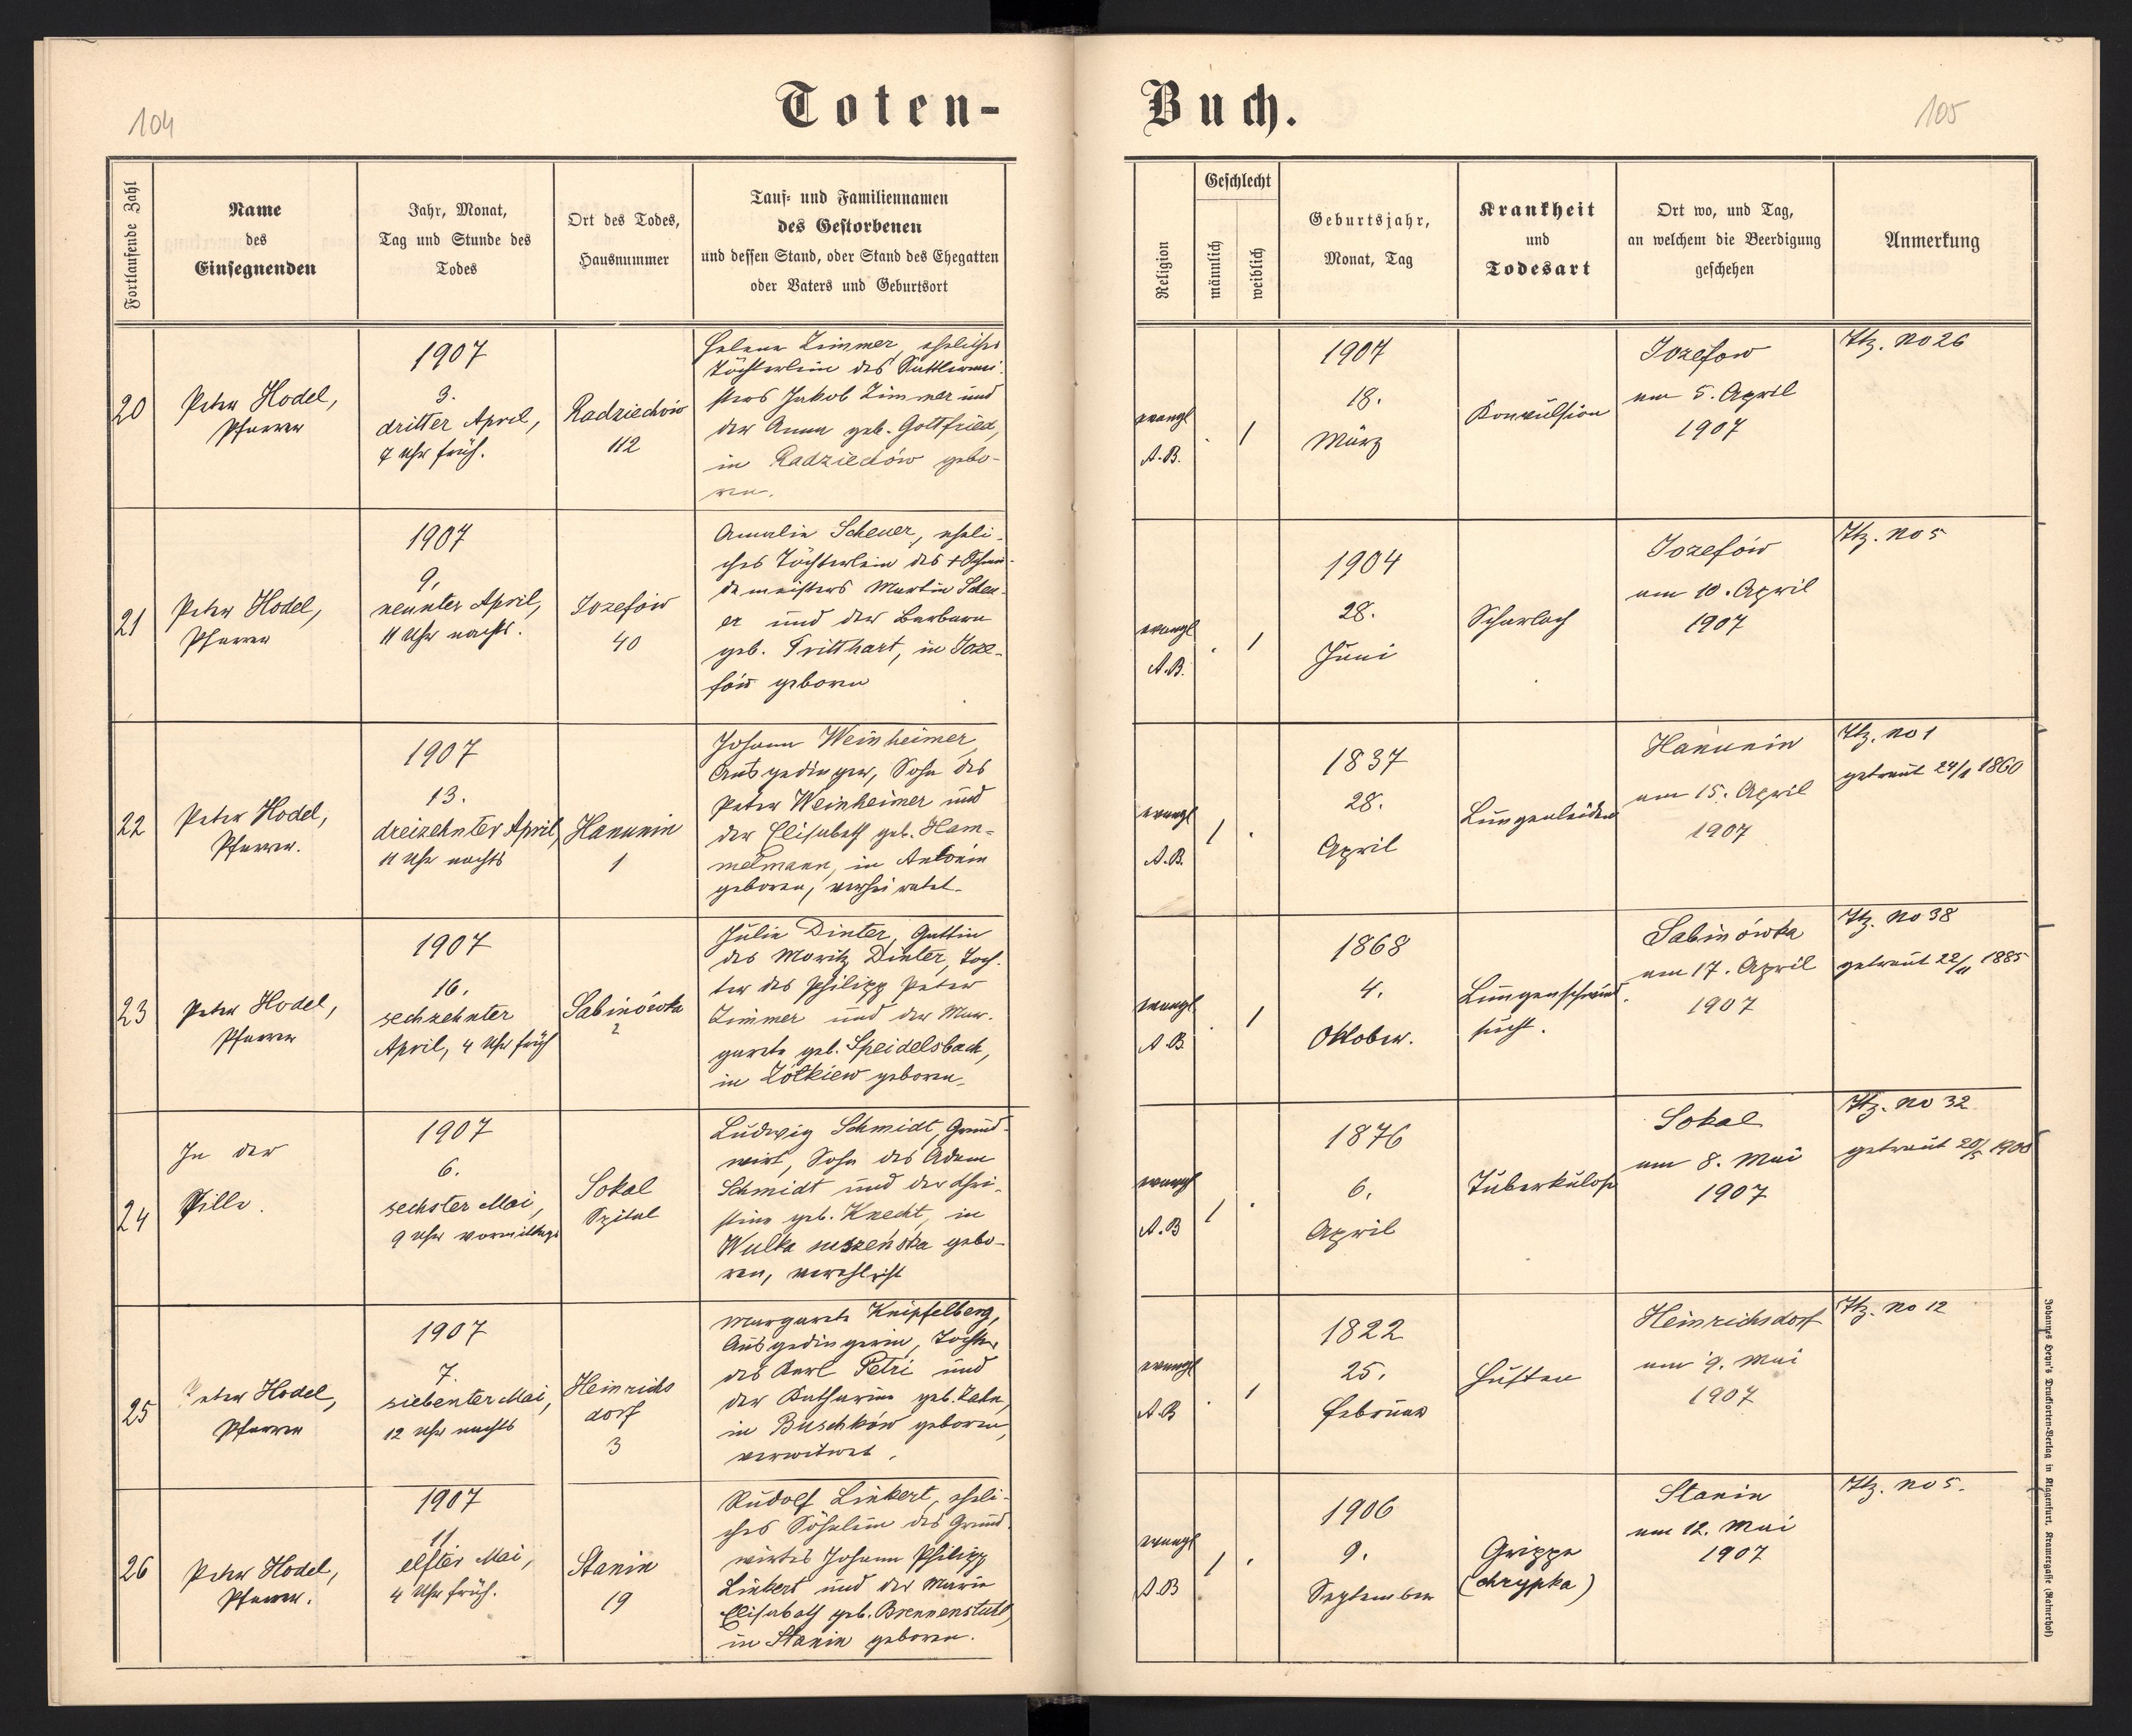 104
Toten-
Fortlaufende Zahl
Name
des
Einsegnenden
Jahr, Monat,
Tag und Stunde des
Todes
Ort des Todes,
Hausnummer
Tauf- und Familiennamen
des Gestorbenen
und dessen Stand, oder Stand des Ehegatten
oder Vaters und Geburtsort
20
Peter Hodel,
Pfarrer
1907
3.
dritter April,
7 Uhr früh.
Radziechów
112
Helene Zimmer, eheliches
Töchterlein des Sattlermei-
sters Jakob Zimmer und
der Anna geb. Gottfried,
in Radziechów gebo-
ren.
21
Peter Hodel,
Pfarrer
1907
9.
neunter April,
11 Uhr nachts.
Jozefów
40
Amalie Scheuer, eheli-
ches Töchterlein des + Schmie-
demeisters Martin Scheu-
er und der Barbara
geb. Tritthart, in Joze-
fów geboren
22
Peter Hodel,
Pfarrer.
1907
13.
dreizehnter April,
11 Uhr nachts
Hanunin
1
Johann Weinheimer,
Ausgedinger, Sohn des
Peter Weinheimer und
der Elisabeth geb. Ham-
melmann, in Antonin
geboren, verheiratet.
23
Peter Hodel,
Pfarrer
1907
16.
sechzehnter
April, 4 Uhr früh
Sabinówka
2
Julie Dinter, Gattin
des Moritz Dinter, Toch-
ter des Philipp Peter
Zimmer und der Mar-
garete geb. Speidelsbach,
in Żółkiew geboren.
24
In der
Stille.
1907
6.
sechster Mai,
9 Uhr vormittags
Sokal
Spital
Ludwig Schmidt, Grund-
wirt, Sohn des Adam
Schmidt und der Chri-
stine geb. Knecht, in
Wulka suszeńska gebo-
ren, verehlicht
25
Peter Hodel,
Pfarrer
1907
7.
siebenter Mai,
12 Uhr nachts
Heinrichs
dorf
3
Margarete Knipfelberg,
Ausgedingerin, Tochter
des Karl Petri und
der Katharina geb.
in Buschków geboren,
verwitwet.
26
Peter Hodel,
Pfarrer.
1907
11.
elfter Mai,
4 Uhr früh.
Stanin
19
Rudolf Linkert, eheli-
ches Söhnlein des Grund-
wirtes Johann Philipp
Linkert und der Marie
Elisabeth geb. Brennenstuhl,
in Stanin geboren.
Buch.
105
Religion
Geschlecht
männlich
weiblich
Geburtsjahr,
Monat, Tag
Krankheit
und
Todesart
Ort wo, und Tag,
an welchem die Beerdigung
geschehen
Anmerkung
evangl
A.B.
. 1
1907
18.
März
Konvulsion
Jozefow
am 5. April
1907
Htz. No 26
evangl
A.B.
. 1
1904
28.
Juni
Scharlach
Jozefów
am 10. April
1907
Htz. No 5
evangl
A.B.
1 .
1837
28.
April
Lungenleiden
Hanunin
am 15. April
1907
Htz. No 1
getraut 1860
evangl
A.B.
. 1
1868
4.
Oktober.
Lungenschwind-
sucht.
Sabinówka
am 17. April
1907
Htz. No 38
getraut 22/11 1885
evangl
A.B
1 .
1876
6.
April
Tuberkulose
Sokal
am 8. Mai
1907
Htz. No 32
getraut
evangl
A.B
. 1
1822
25.
Februar
Husten
Heinrichsdorf
am 9. Mai
1907
Htz. No 12
evangl
A.B
1 .
1906
9.
September
Grippe
(chrypka)
Stanin
am 12. Mai
1907
Htz. No 5.
Johannes Heyn's Drucksorten-Verlag in Klagenfurt, Kramergasse (Rainerhof)